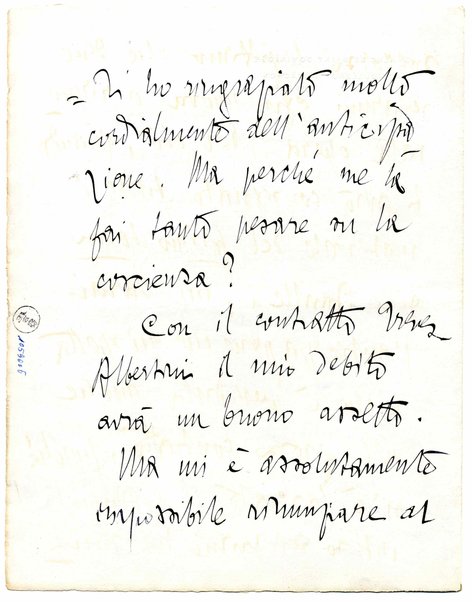 = Ti ho ringraziato molto
cordialmente dell'anticipa
zione. Ma perché me la
fai tanto pesare su la
coscienza?
Con il contratto Treves
Albertini il mio debito
avrà un buono assetto.
Ma mi è assolutamente
impossibile rinunziare al